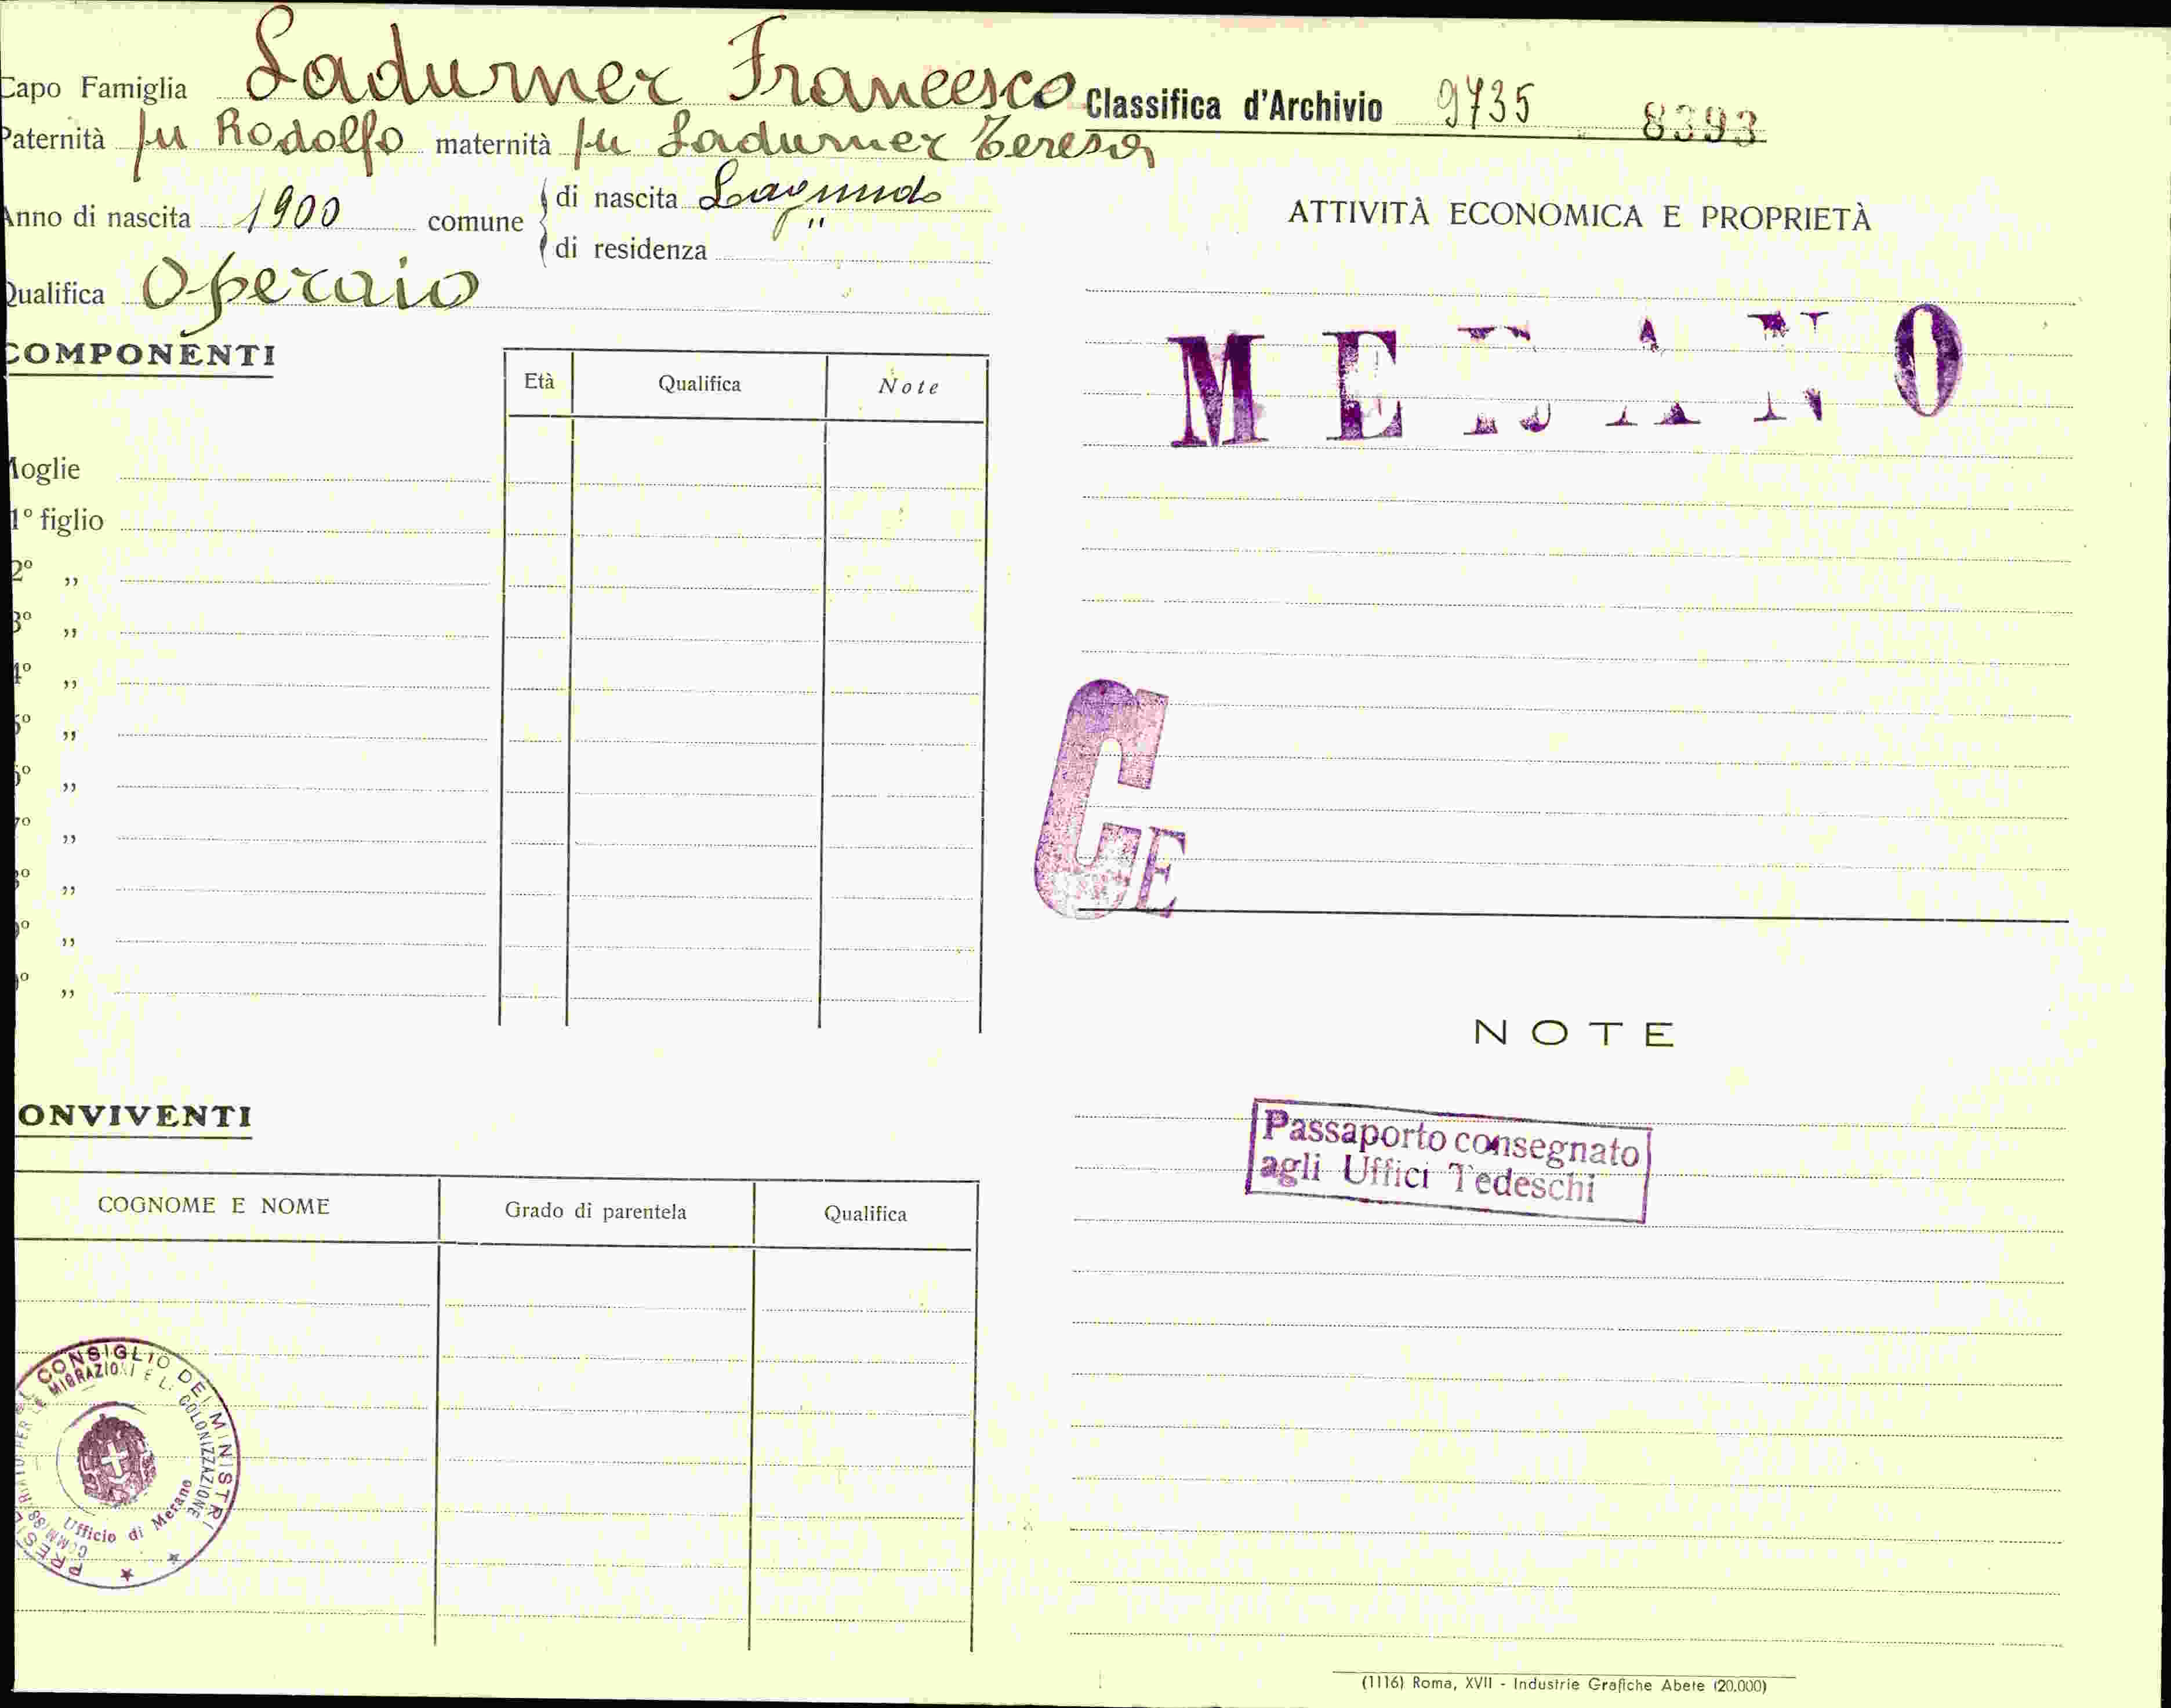 Capo Famiglia Ladurner Francesco
Paternità fu Rodolfo maternità fu Ladurner Teresa
Anno di nascita 1900 comune
di nascita Lagundo
di residenza "
Qualifica Operaio
COMPONENTI
Età Qualifica Note
Moglie
1° figlio
2° „
3° „
4° „
5° „
6° „
7° „
8° „
9° „
0° „
CONVIVENTI
COGNOME E NOME Grado di parentela Qualifica
PRESIDENZA DEL CONSIGLIO DEI MINISTRI
COMMISSARIATO PER LE MIGRAZIONI E LA COLONIZZAZIONE
Ufficio di Merano
Classifica d'Archivio 9735 8393
ATTIVITÀ ECONOMICA E PROPRIETÀ
MERANO
CE
NOTE
Passaporto consegnato
agli Uffici Tedeschi
(1116) Roma, XVII - Industrie Grafiche Abete (20.000)